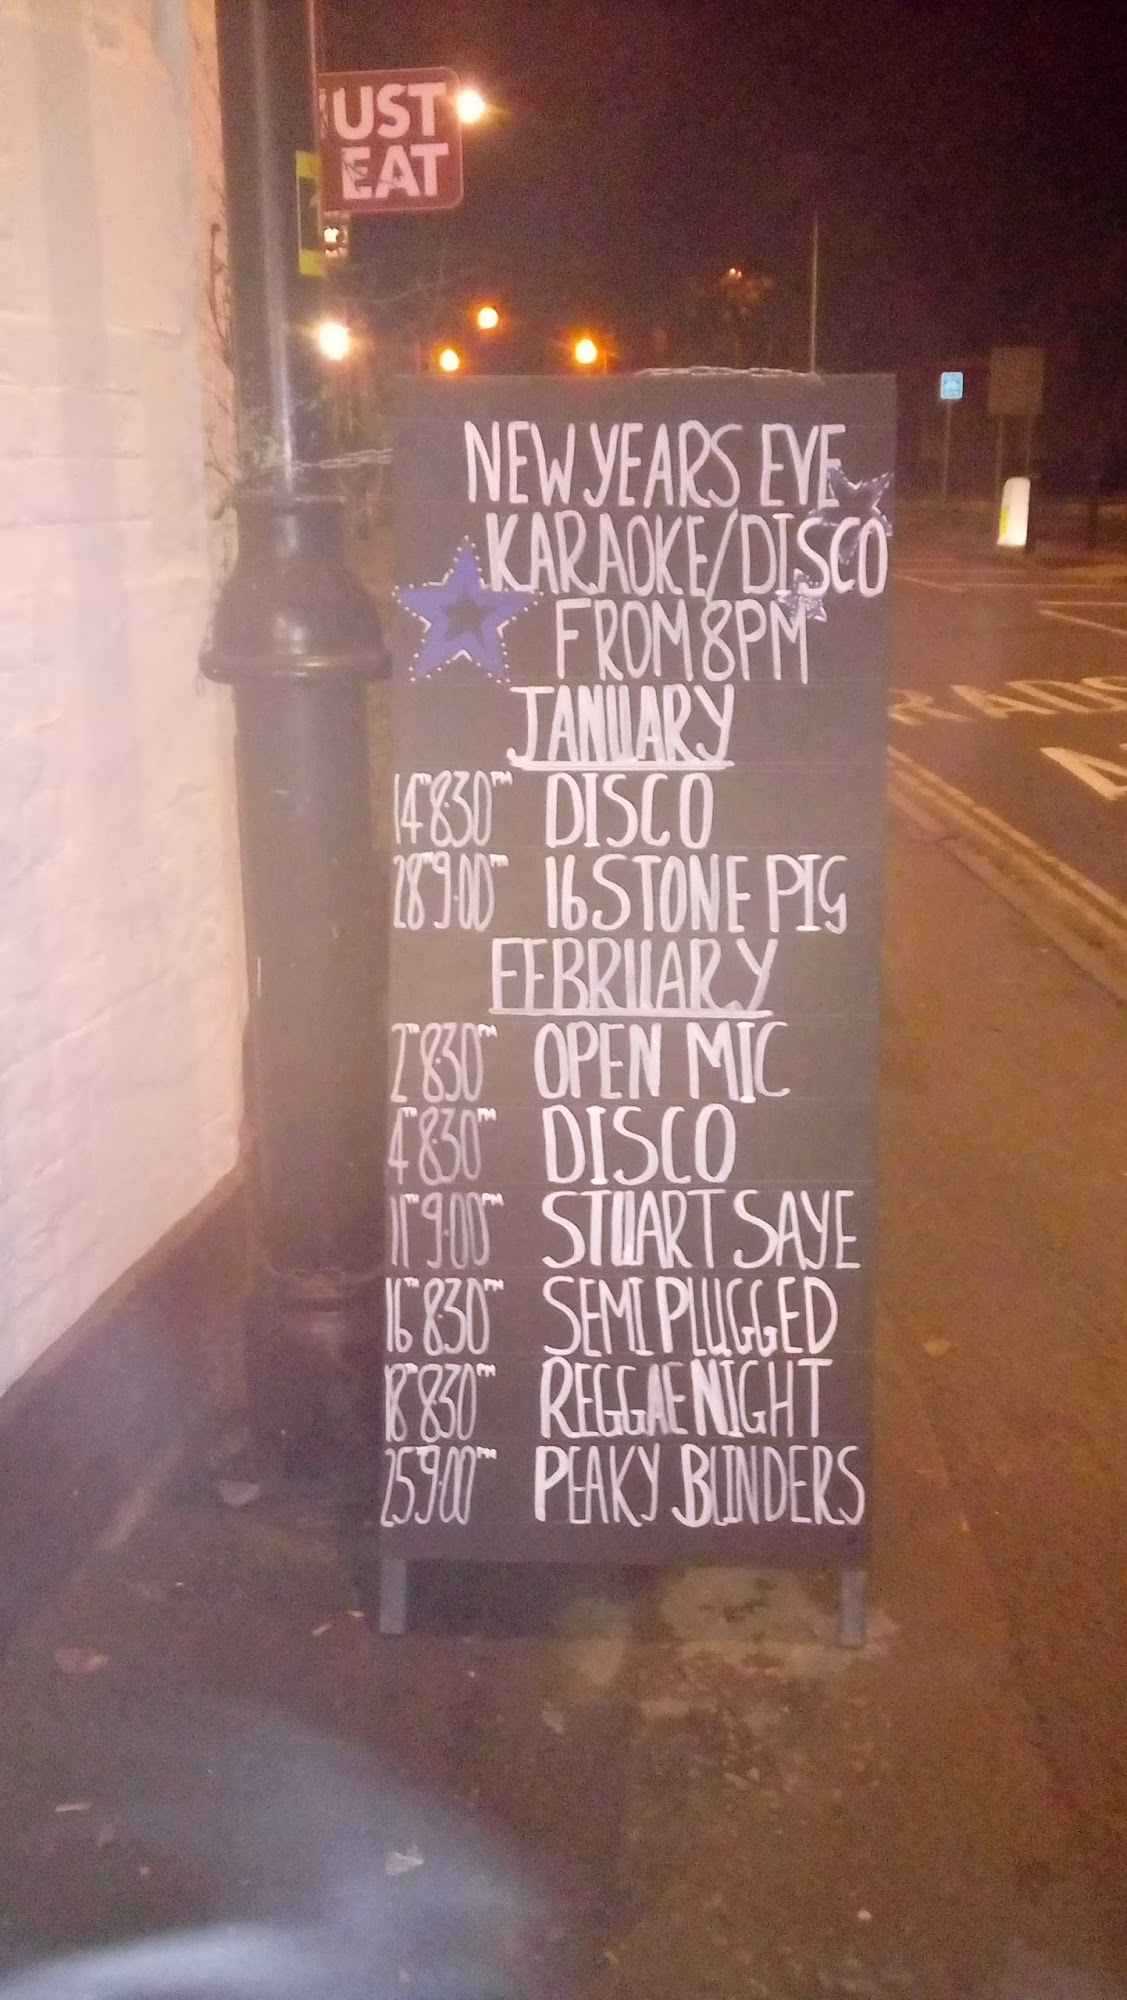 JUST
EAT
NEW YEARS EVE
KARAOKE/DISCO
FROM 8PM
JANUARY
14TH 8.30PM DISCO
28TH 9.00PM 16 STONE PIG
FEBRUARY
2TH 8.30PM OPEN MIC
4TH 8.30PM DISCO
11TH 9.00PM STUART SAYE
16TH 8.30PM SEMI PLUGGED
18TH 8.30PM REGGAE NIGHT
25TH 9.00PM PEAKY BLINDERS